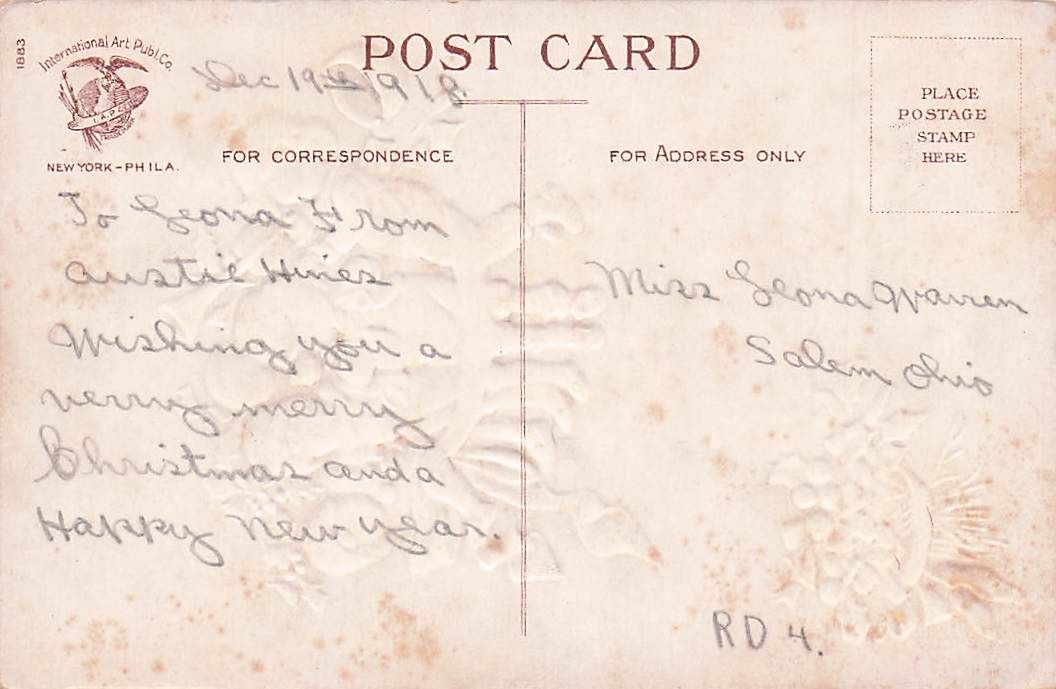 1883
International Art Publ. Co.
I. A. P. Co.
NEW YORK - PHILA.
POST CARD
Dec 19th 1918
FOR CORRESPONDENCE
FOR ADDRESS ONLY
PLACE
POSTAGE
STAMP
HERE
To Leona From
Austie Hines
Wishing you a
verry merry
Christmas and a
Happy New year.
Miss Leona Warren
Salem Ohio
RD 4.